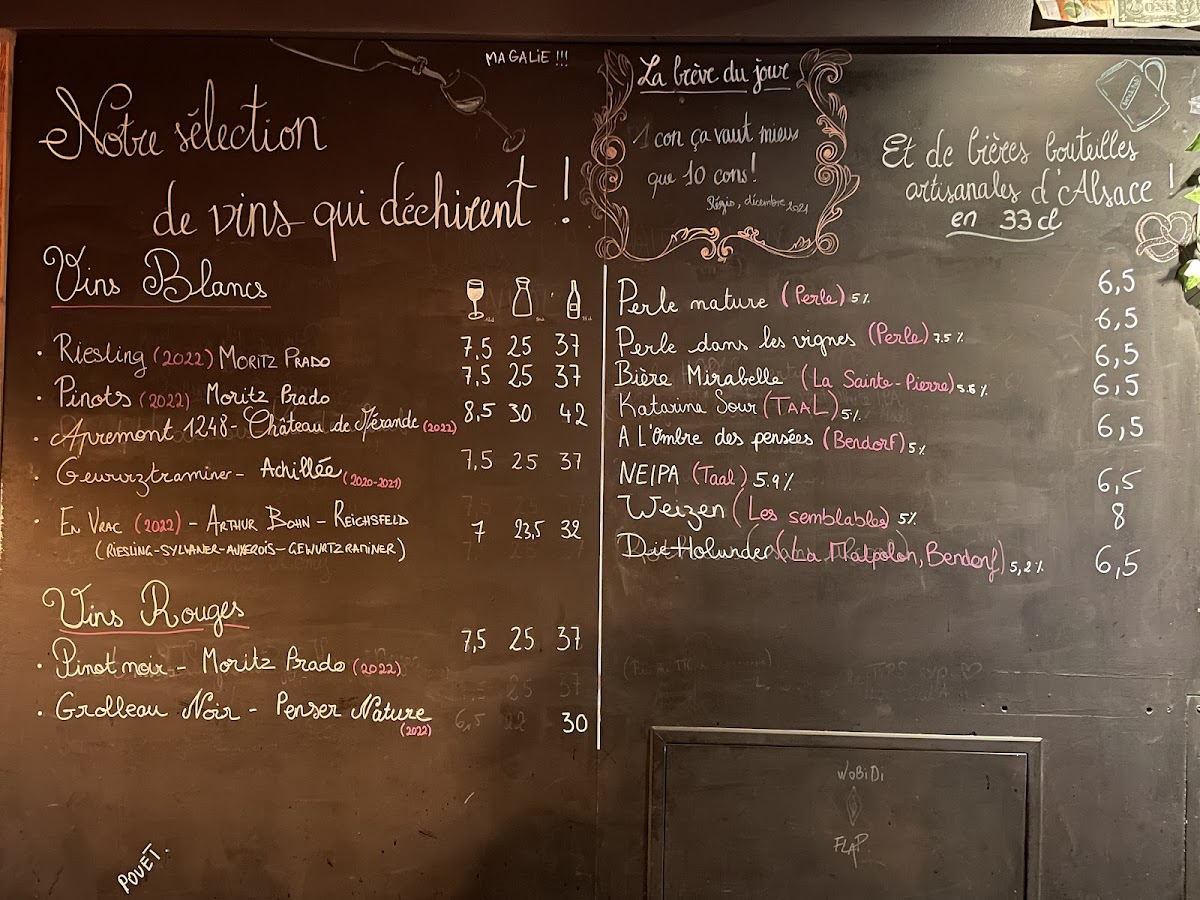 MAGALIE !!!
Notre sélection
de vins qui déchirent !
La brève du jour
1 con ça vaut mieux
que 10 cons!
Régis, décembre 2021
Et de bières bouteilles
artisanales d'Alsace !
en 33 cl
Vins Blancs
· Riesling (2022) MORITZ PRADO 7,5 25 37
· Pinots (2022) MORITZ PRADO 7,5 25 37
· Apremont 1248- Château de Mérande (2022) 8,5 30 42
· Gewurztraminer - Achillée (2020-2021) 7,5 25 37
· EN VRAC (2022) - ARTHUR BOHN - REICHSFELD 7 23,5 32
(RIESLING-SYLVANER-AUXEROIS-GEWURTZRAMINER)
Vins Rouges
· Pinot noir - Moritz Prado (2022) 7,5 25 37
· Grolleau Noir - Penser Nature (2022) 6,5 22 30
Perle nature (Perle) 5% 6,5
Perle dans les vignes (Perle) 7.5% 6,5
Bière Mirabelle (La Sainte-Pierre) 5.6% 6,5
Katarina Sour (TAAL) 5% 6,5
A L'Ombre des pensées (Bendorf) 5% 6,5
NEIPA (Taal) 5.9% 6,5
Weizen (Les semblables) 5% 8
Die Holunder (La Malpolon, Bendorf) 5,2% 6,5
WOBIDI
FLAP
POUET.
ONE